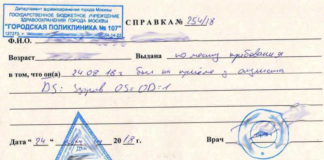 Департамент здравоохранения города Москвы
ГОСУДАРСТВЕННОЕ БЮДЖЕТНОЕ УЧРЕЖДЕНИЕ
ЗДРАВООХРАНЕНИЯ ГОРОДА МОСКВЫ
"ГОРОДСКАЯ ПОЛИКЛИНИКА № 107"
СПРАВКА № 254/18
Ф.И.О.
Возраст Выдана по месту требования
в том, что он(а) 24.08.18 г был на приёме у окулиста
DS: Здоров OS=OD=1
Дата " 24 " 2018 г. Врач